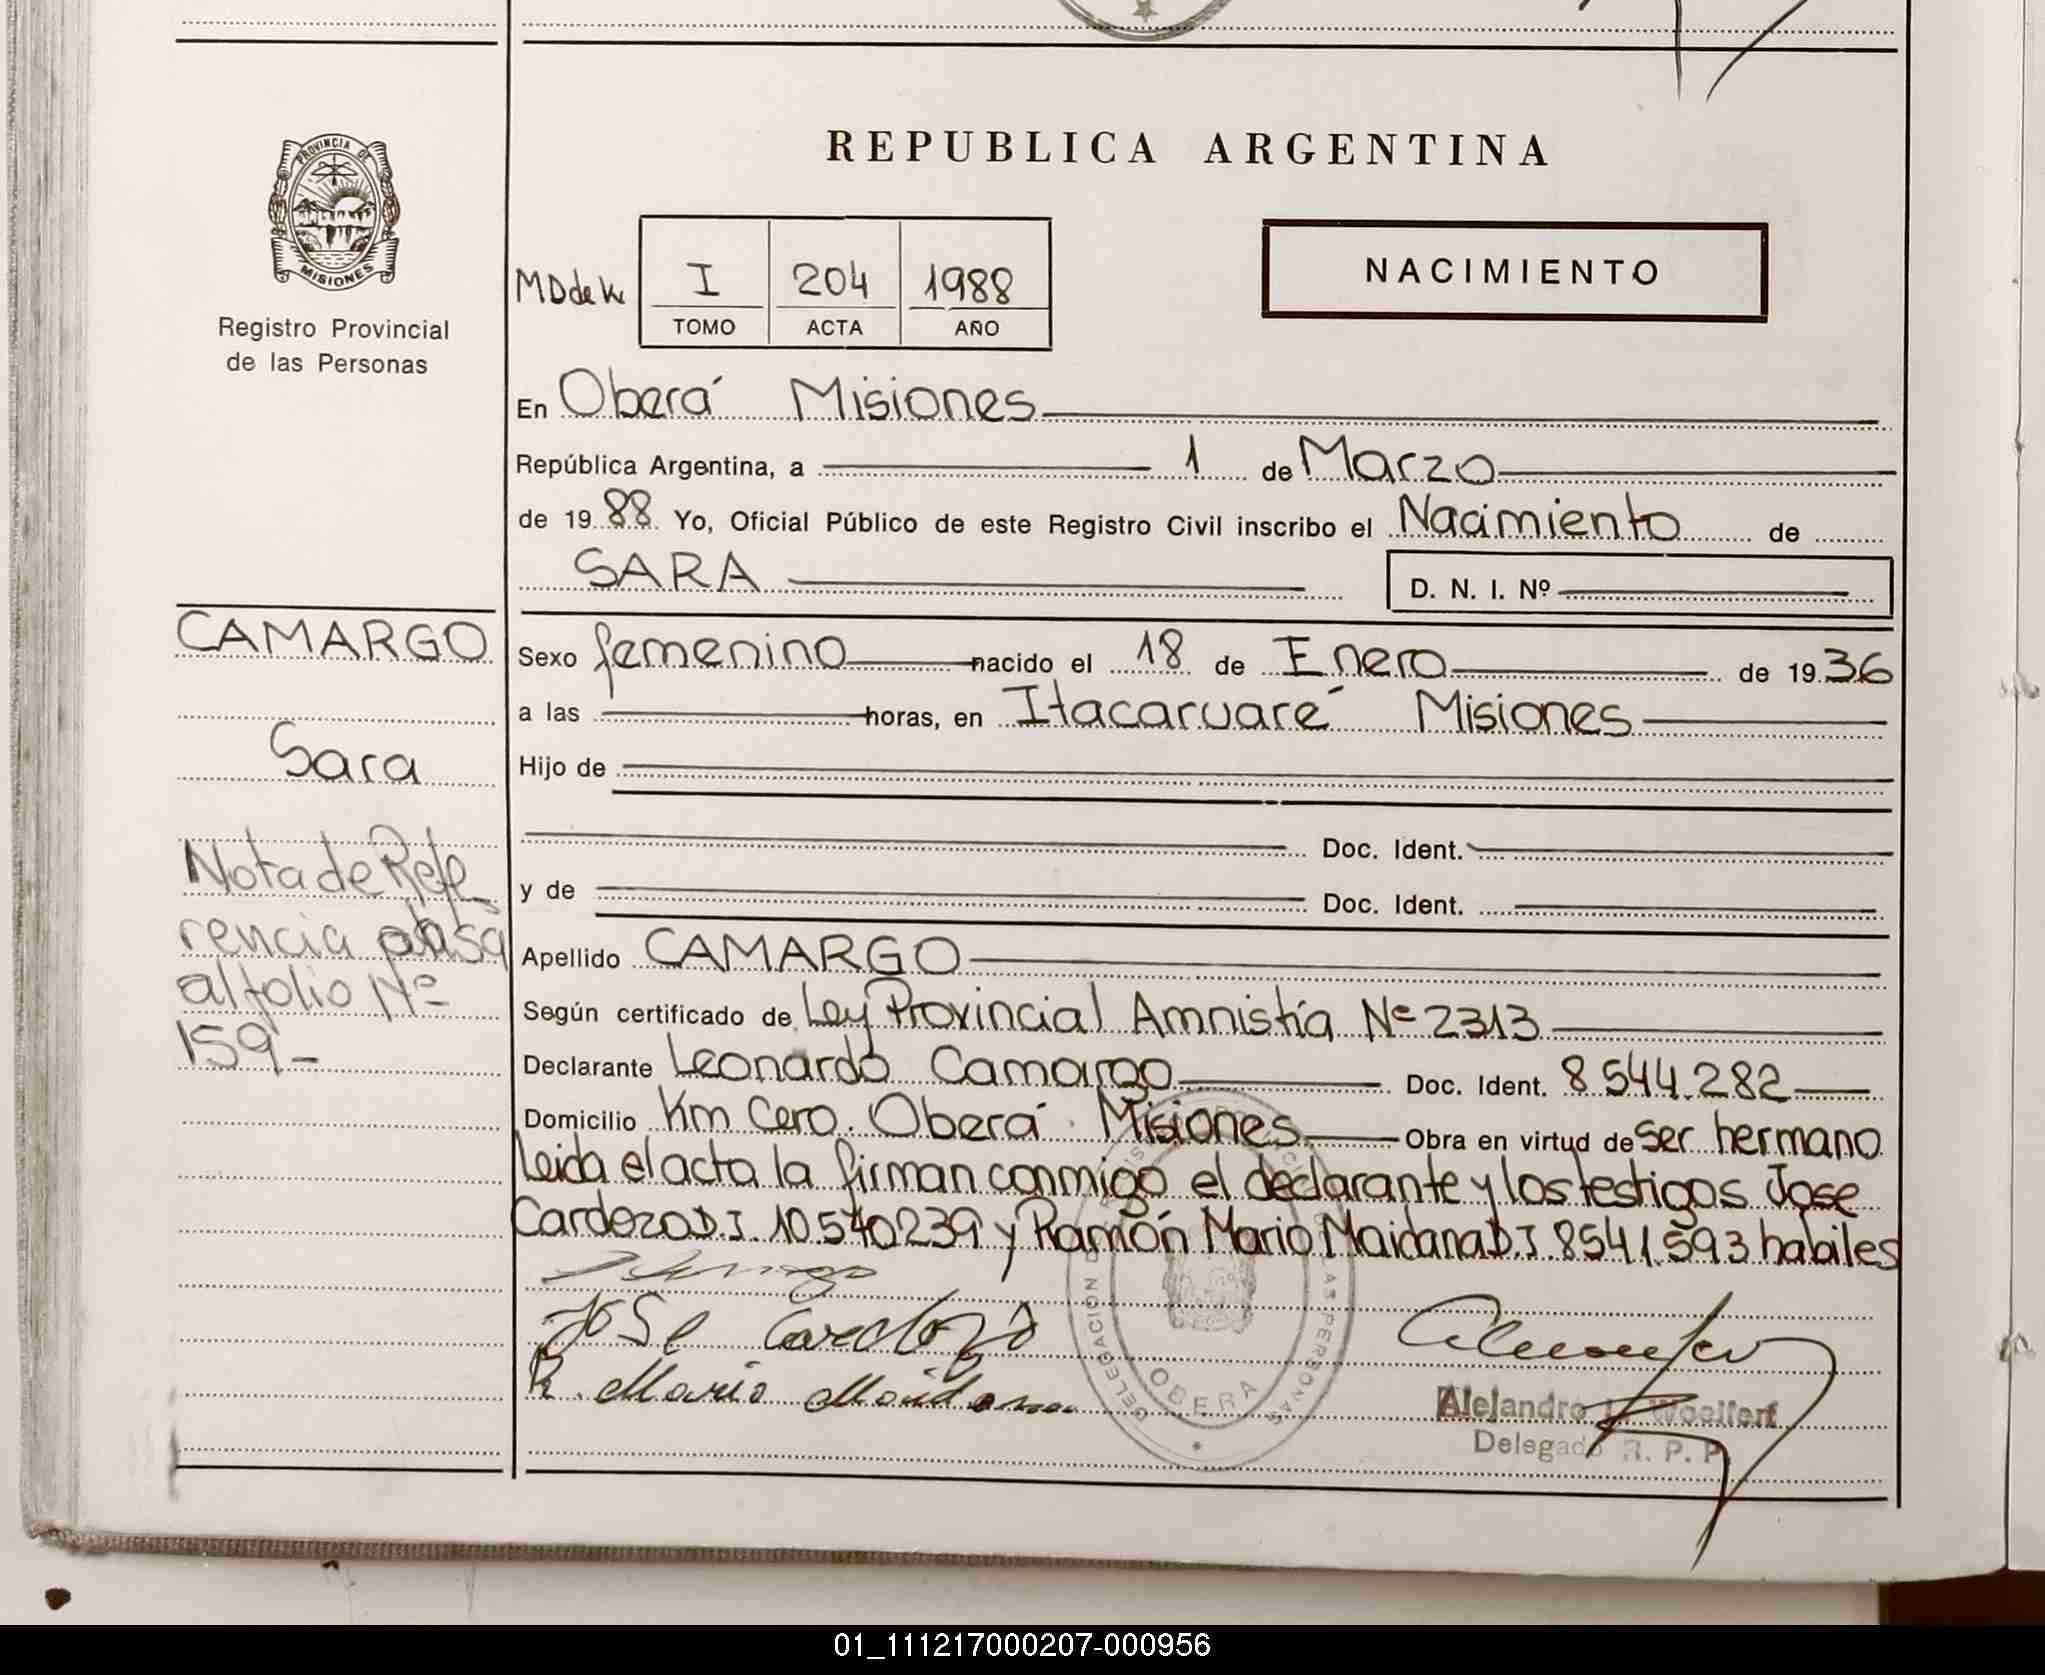 PROVINCIA DE
MISIONES
Registro Provincial
de las Personas
REPUBLICA ARGENTINA
NACIMIENTO
I 204 1988
TOMO ACTA AÑO
En Oberá Misiones
República Argentina, a 1 de Marzo
de 1988 Yo, Oficial Público de este Registro Civil inscribo el Nacimiento de
SARA D. N. I. Nº
CAMARGO
Sara
Nota de Refe
rencia
al folio Nº
159-
Sexo femenino nacido el 18 de Enero de 1936
a las horas, en Itacaruaré Misiones
Hijo de
Doc. Ident.
y de Doc. Ident.
Apellido CAMARGO
Según certificado de Ley Provincial Amnistía Nº 2313
Declarante Leonardo Camargo Doc. Ident. 8544.282
Domicilio Km Cero. Oberá Misiones Obra en virtud de ser hermano
Leida el acta la firman conmigo el declarante y los testigos Jose
Cardozo D.I. 10.540239 y Ramón Mario Maidana D.I. 8541.593 habiles
Jose Cardozo
R. Mario Maidana
DELEGACION PERSONAS
OBERA
Alejandro Woelfert
Delegado R. P. P.
01_111217000207-000956